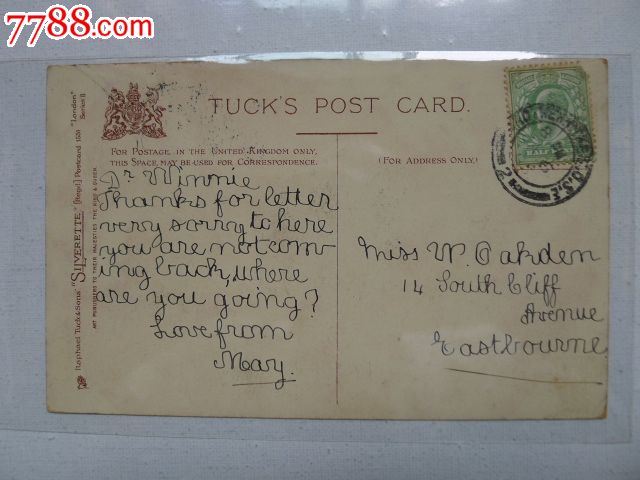 7788.com
TUCK'S POST CARD.
FOR POSTAGE IN THE UNITED KINGDOM ONLY,
THIS SPACE MAY BE USED FOR CORRESPONDENCE.
(FOR ADDRESS ONLY.)
Raphael Tuck & Sons' "SILVERETTE" [Regd.] Postcard "London" Series II
ART PUBLISHERS TO THEIR MAJESTIES THE KING & QUEEN
Dr Winnie
Thanks for letter
very sorry to here
you are not com
ing back, where
are you going?
Love from
May.
Miss W. Oakden
14 South Cliff
Avenue
Eastbourne